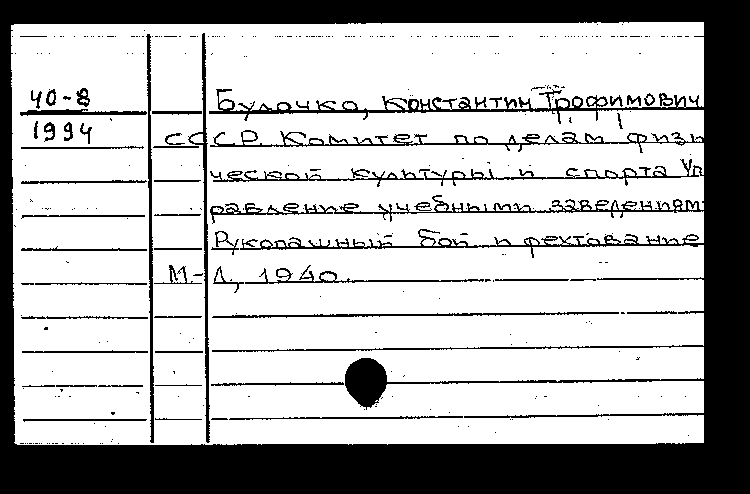 40-8 Булочко, Константин Трофимович
1994 СССР. Комитет по делам физи
ческой культуры и спорта Уп
равление учебными заведениям
Рукопашный бой и фехтование
М.-Л, 1940.